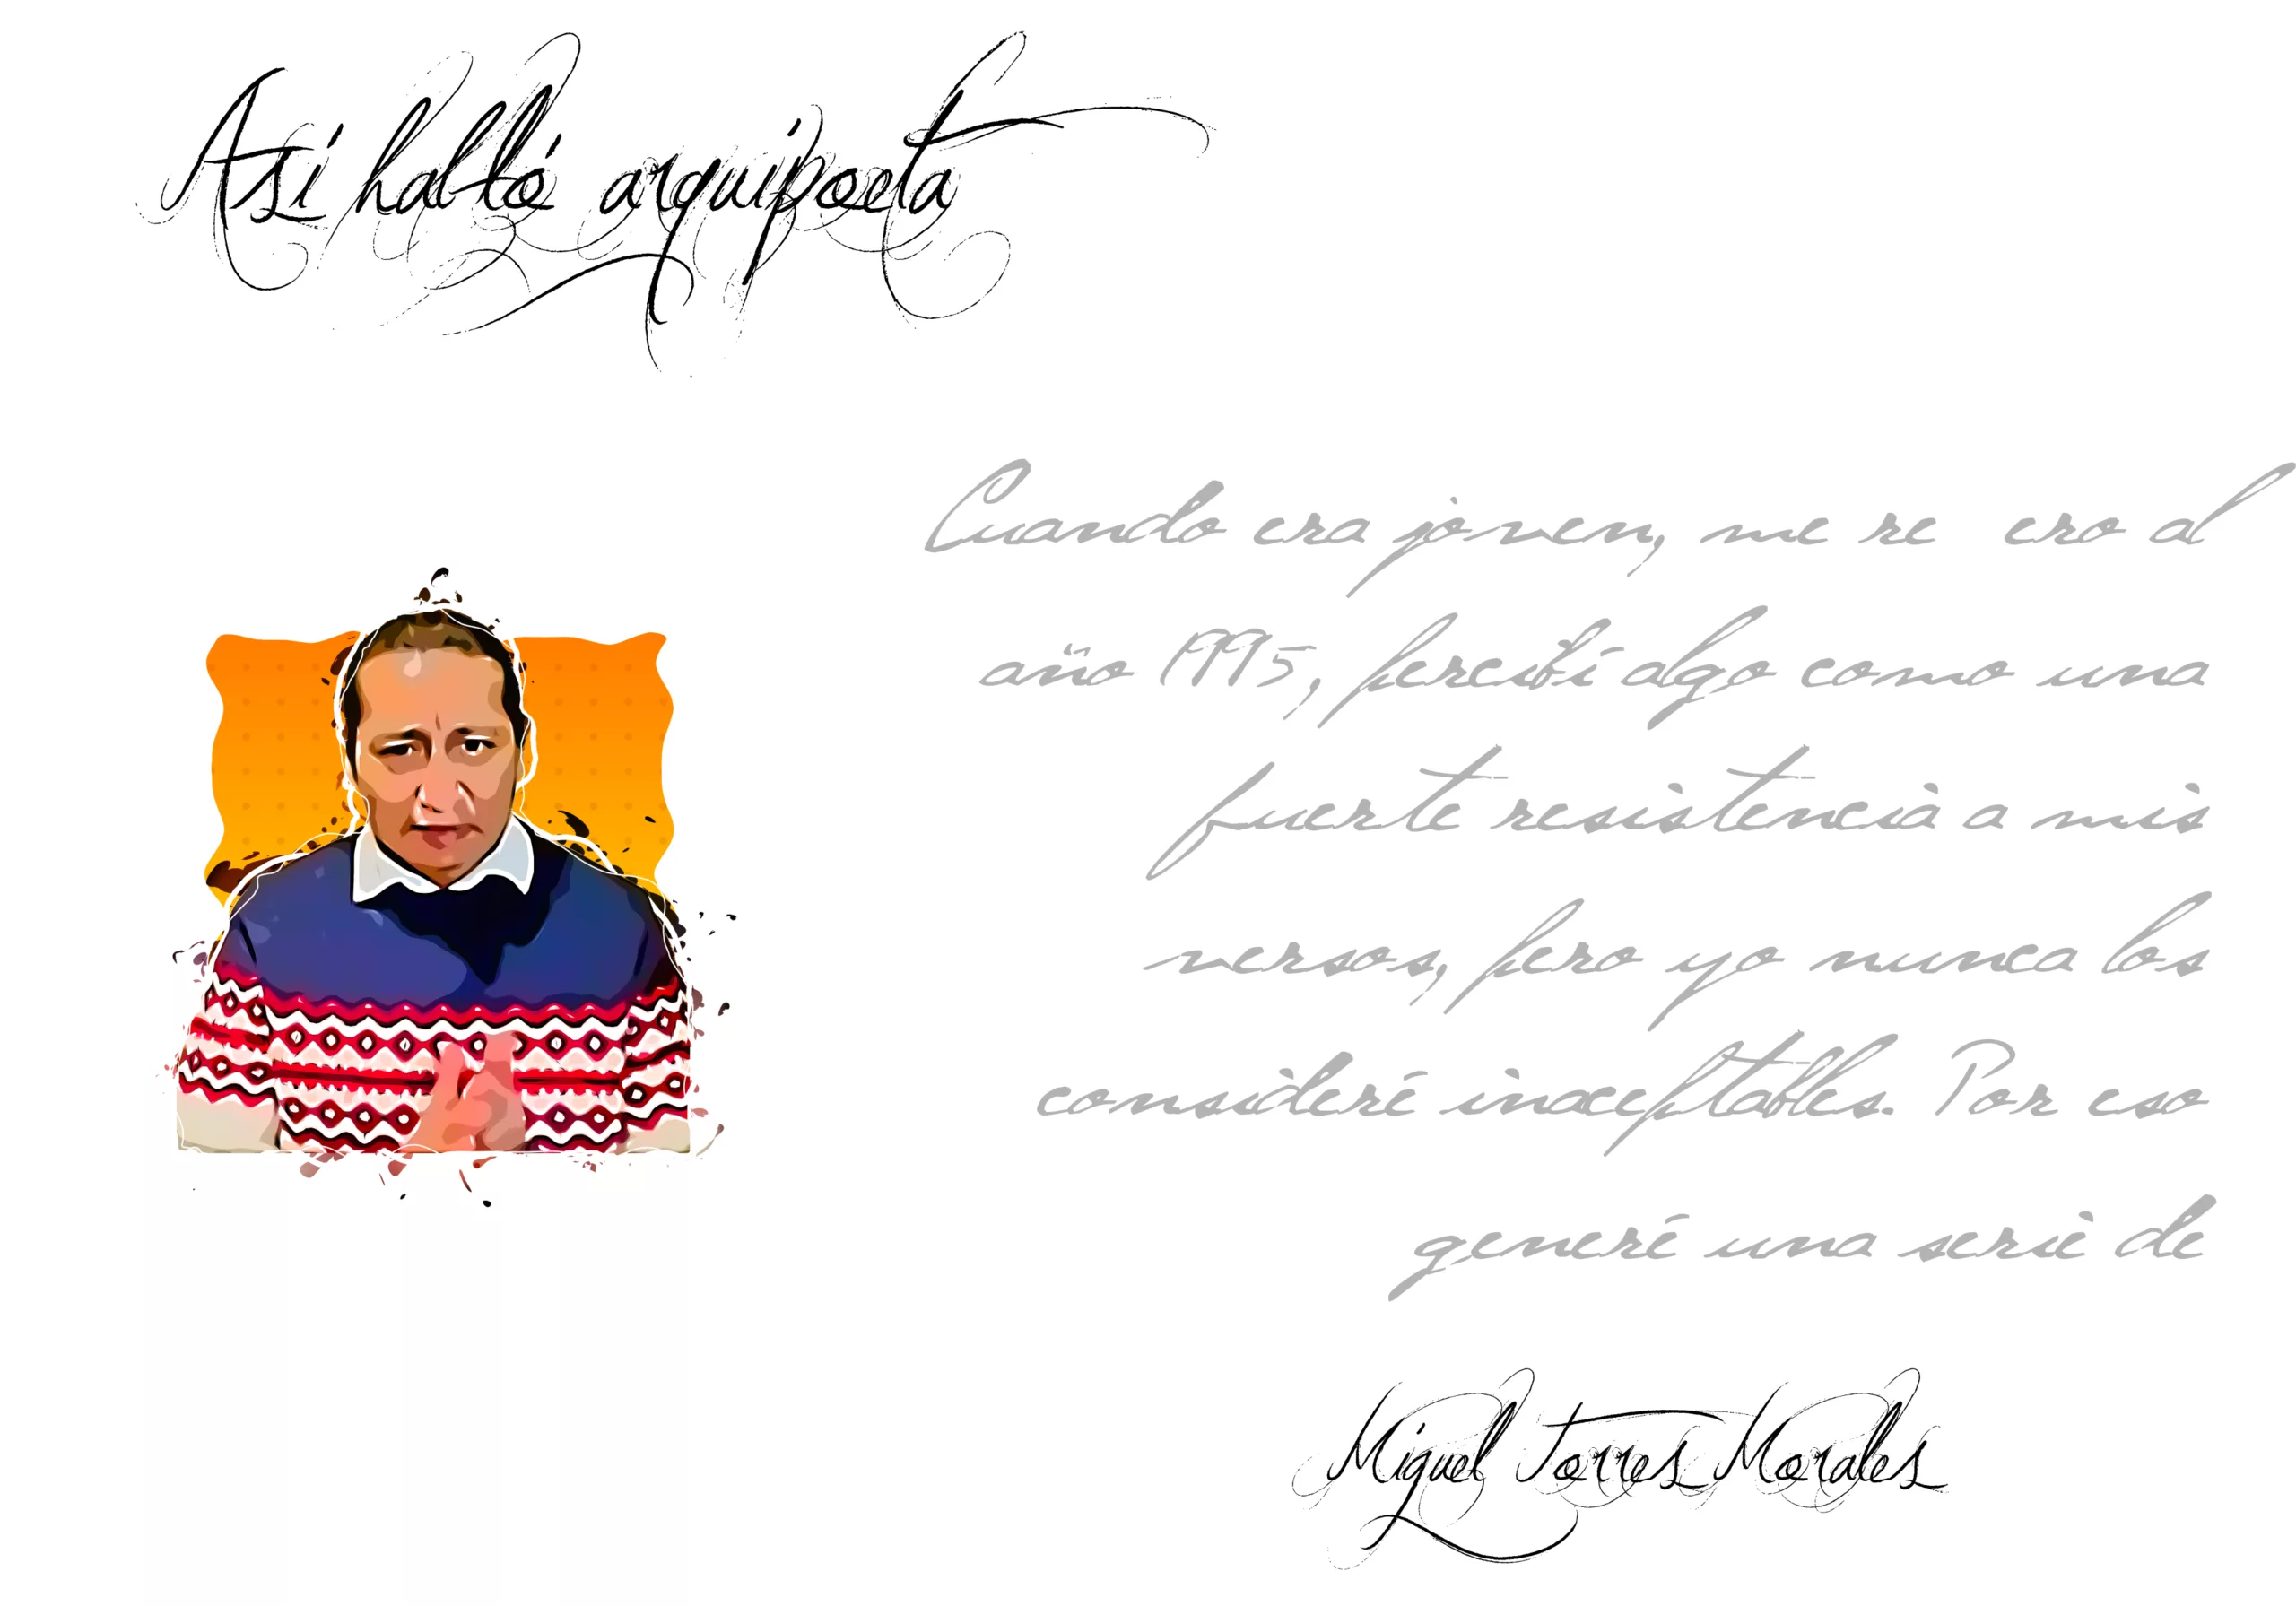 Así habló arquipoeta
Cuando era joven, me re ero al
año 1995, percibí algo como una
fuerte resistencia a mis
versos, pero yo nunca los
consideré inaceptables. Por eso
generé una serie de
Miguel Torres Morales